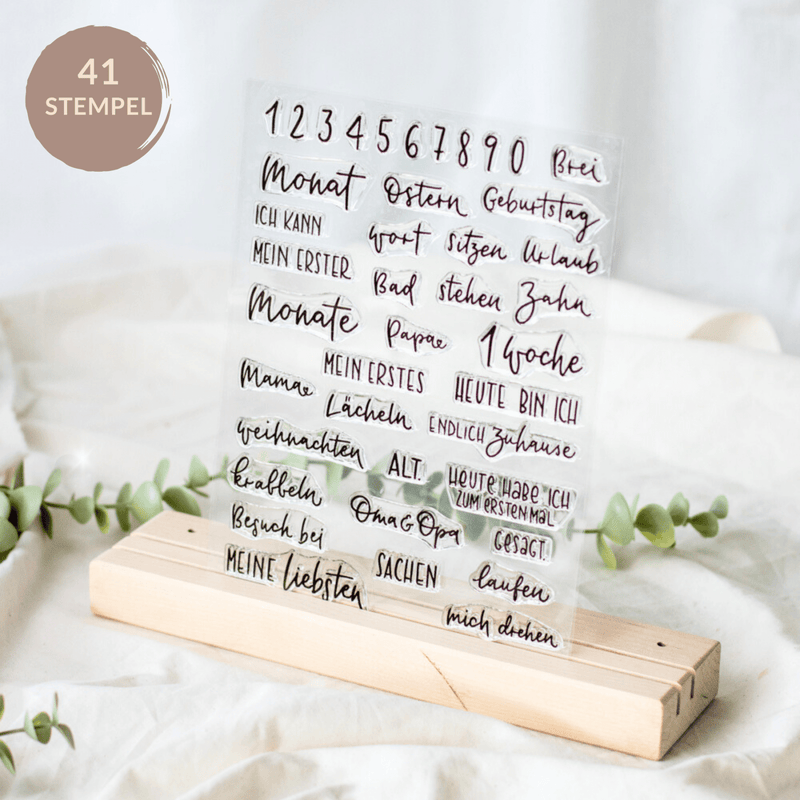 41
STEMPEL
1 2 3 4 5 6 7 8 9 0 Brei
Monat Ostern Geburtstag
ICH KANN wort sitzen Urlaub
MEIN ERSTER Bad stehen Zahn
Monate Papa 1 Woche
MEIN ERSTES HEUTE BIN ICH
Mama Lächeln ENDLICH Zuhause
Weihnachten ALT. HEUTE HABE ICH
ZUM ERSTEN MAL
krabbeln Oma & Opa GESAGT.
Besuch bei
MEINE liebsten SACHEN laufen
mich drehen